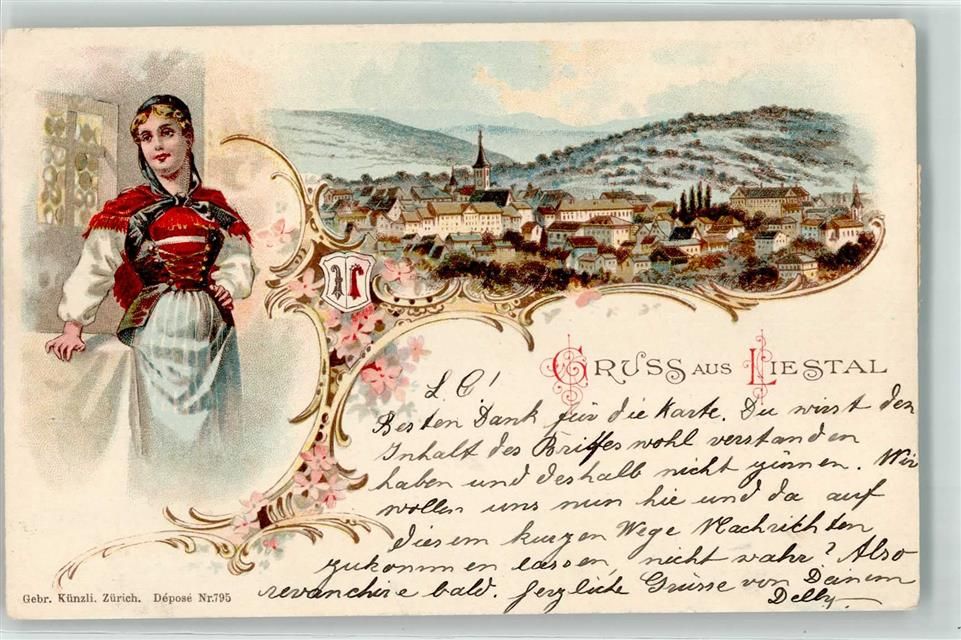 GRUSS AUS LIESTAL
L. C!
Besten Dank für die Karte. Du wirst den
Inhalt des Briffes wohl verstanden
haben und deshalb nicht zürnen. Wir
wollen uns nun hie und da auf
diesem kurzen Wege Nachrichten
zukommen lassen, nicht wahr? Also
revanchire bald. Herzliche Grüsse von Deinem
Delly.
Gebr. Künzli. Zürich. Déposé Nr.795